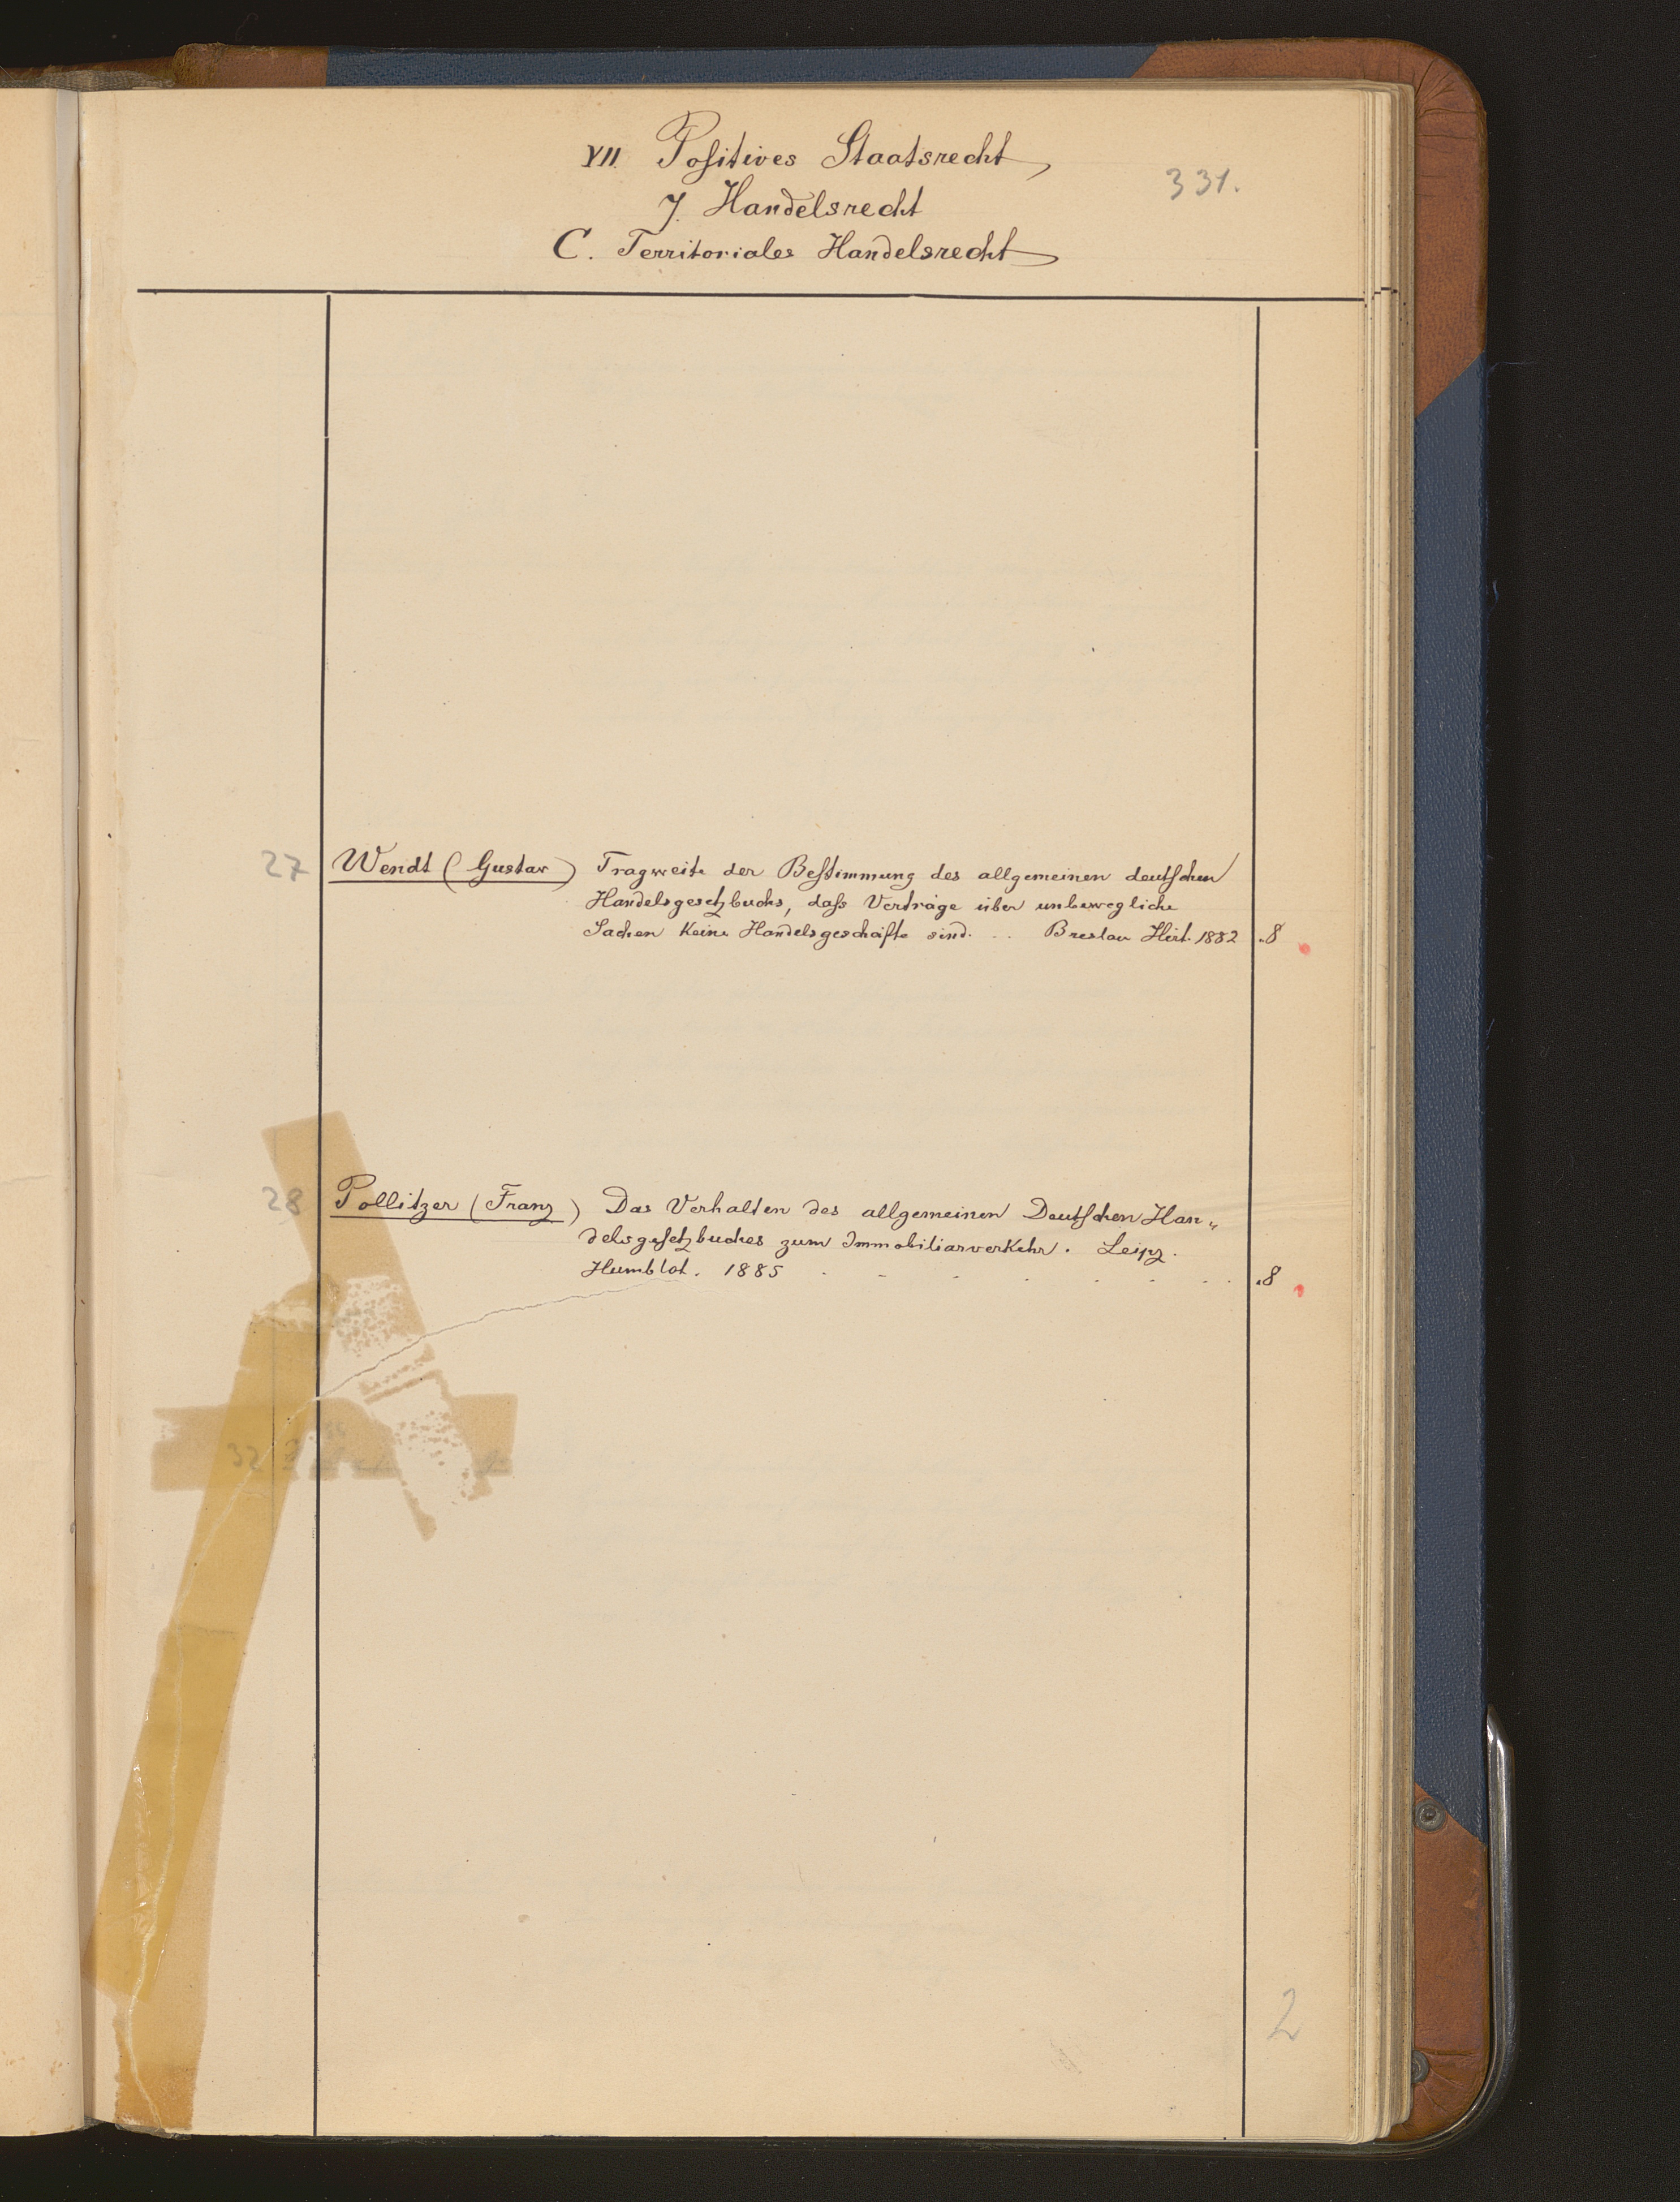 VII. Positives Staatsrecht,
331.
7. Handelsrecht
C. Territoriales Handelsrecht
27 Wendt (Gustav) Tragweite der Bestimmung des allgemeinen deutschen
Handelsgesetzbuchs, dass Verträge über unbewegliche
Sachen keine Handelsgeschäfte sind. . . Breslau Hirt. 1882 .8
28 Pollitzer (Franz) Das Verhalten des allgemeinen Deutschen Han„
delsgesetzbuches zum Immobiliarverkehr. Leipz.
Humblot. 1885 . . . . . . . . .8
32
2